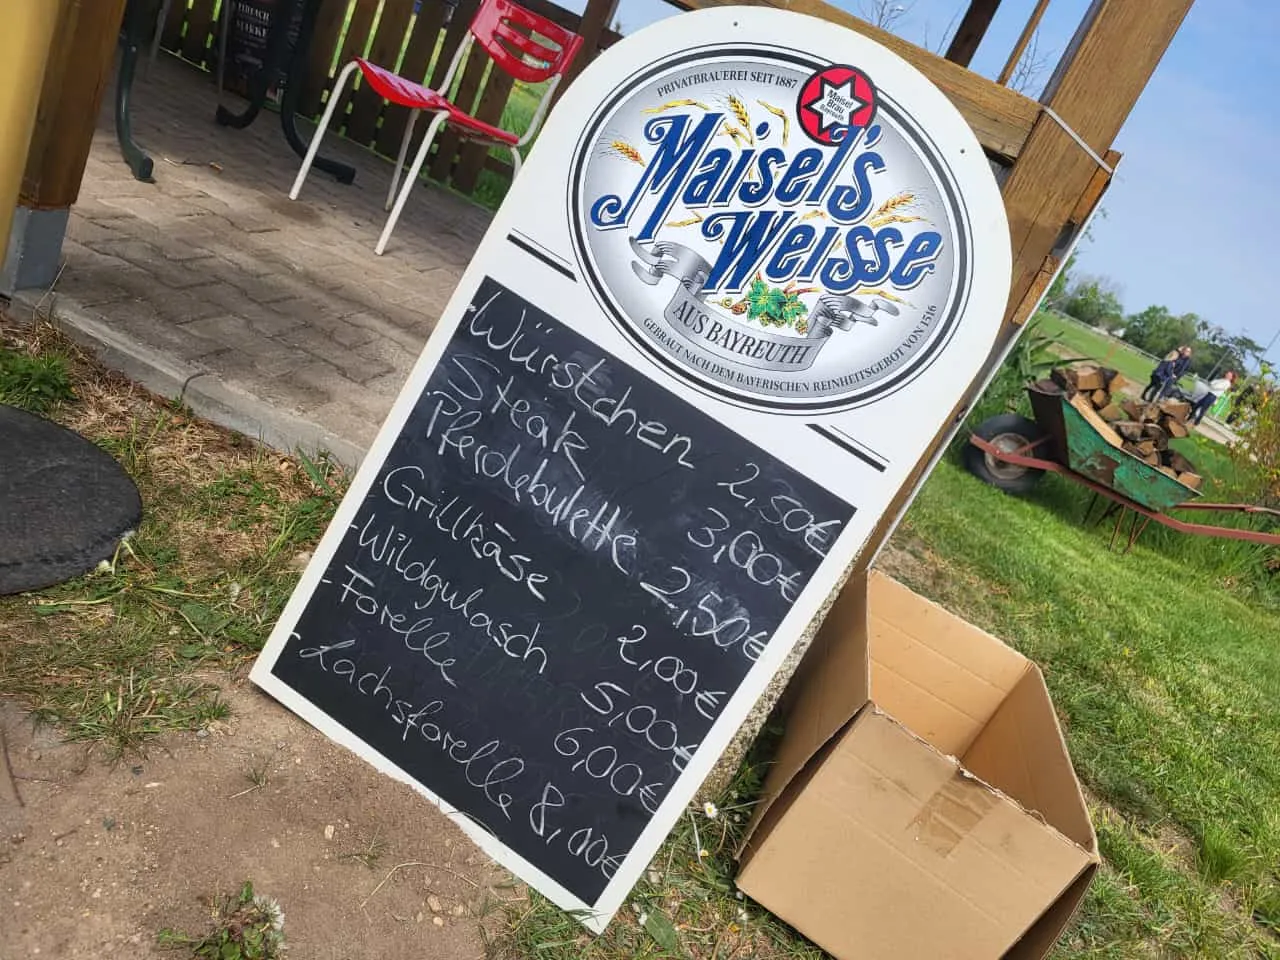 PRIVATBRAUEREI SEIT 1887
Maisel
Bräu
Bayreuth
Maisel's
Weisse
AUS BAYREUTH
GEBRAUT NACH DEM BAYERISCHEN REINHEITSGEBOT VON 1516
- Würstchen 2,50€
Steak 3,00€
Pferdebulette 2,50€
- Grillkäse 2,00€
- Wildgulasch 5,00€
- Forelle 6,00€
- Lachsforelle 8,00€